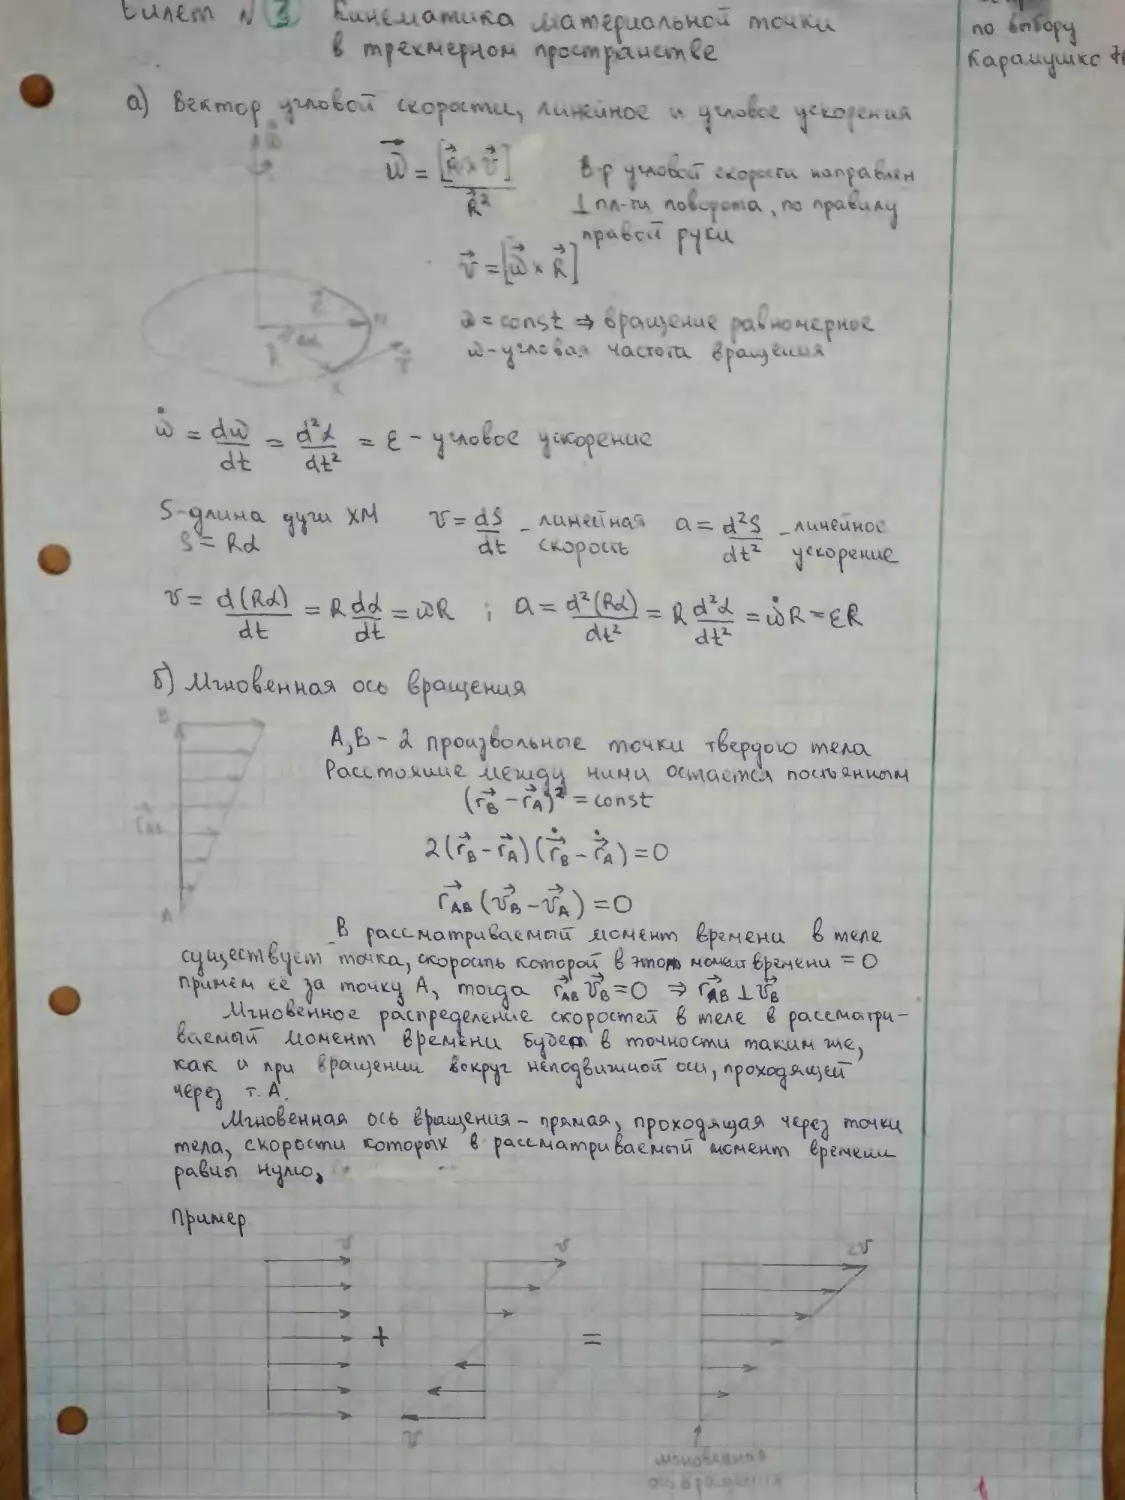 Билет N 3 Кинематика материальной точки
в трехмерном пространстве
по выбору
Карамушко
а) Вектор угловой скорости, линейное и угловое ускорения
ω⃗ = [R⃗ × v⃗] / R⃗²
В-р угловой скорости направлен
⊥ пл-ти поворота, по правилу
правой руки
v⃗ = [ω⃗ × R⃗]
ω = const ⇒ вращение равномерное
ω - угловая частота вращения
R
dα
M
X
v⃗
ω̇ = dω/dt = d²α/dt² = ε - угловое ускорение
S - длина дуги XM v = dS/dt - линейная скорость a = d²S/dt² - линейное ускорение
S = Rα
v = d(Rα)/dt = R dα/dt = ωR ; a = d²(Rα)/dt² = R d²α/dt² = ω̇R = εR
б) Мгновенная ось вращения
B
r⃗AB
A
A, B - 2 произвольные точки твердого тела
Расстояние между ними остается постоянным
(r⃗B - r⃗A)² = const
2(r⃗B - r⃗A)(ṙ⃗B - ṙ⃗A) = 0
r⃗AB (v⃗B - v⃗A) = 0
В рассматриваемый момент времени в теле
существует точка, скорость которой в этот момент времени = 0
примем её за точку A, тогда r⃗AB v⃗B = 0 ⇒ r⃗AB ⊥ v⃗B
Мгновенное распределение скоростей в теле в рассматри-
ваемый момент времени будет в точности таким же,
как и при вращении вокруг неподвижной оси, проходящей
через т. A.
Мгновенная ось вращения - прямая, проходящая через точки
тела, скорости которых в рассматриваемый момент времени
равны нулю,
Пример
v v 2v
+ =
v
мгновенная
ось вращения
1